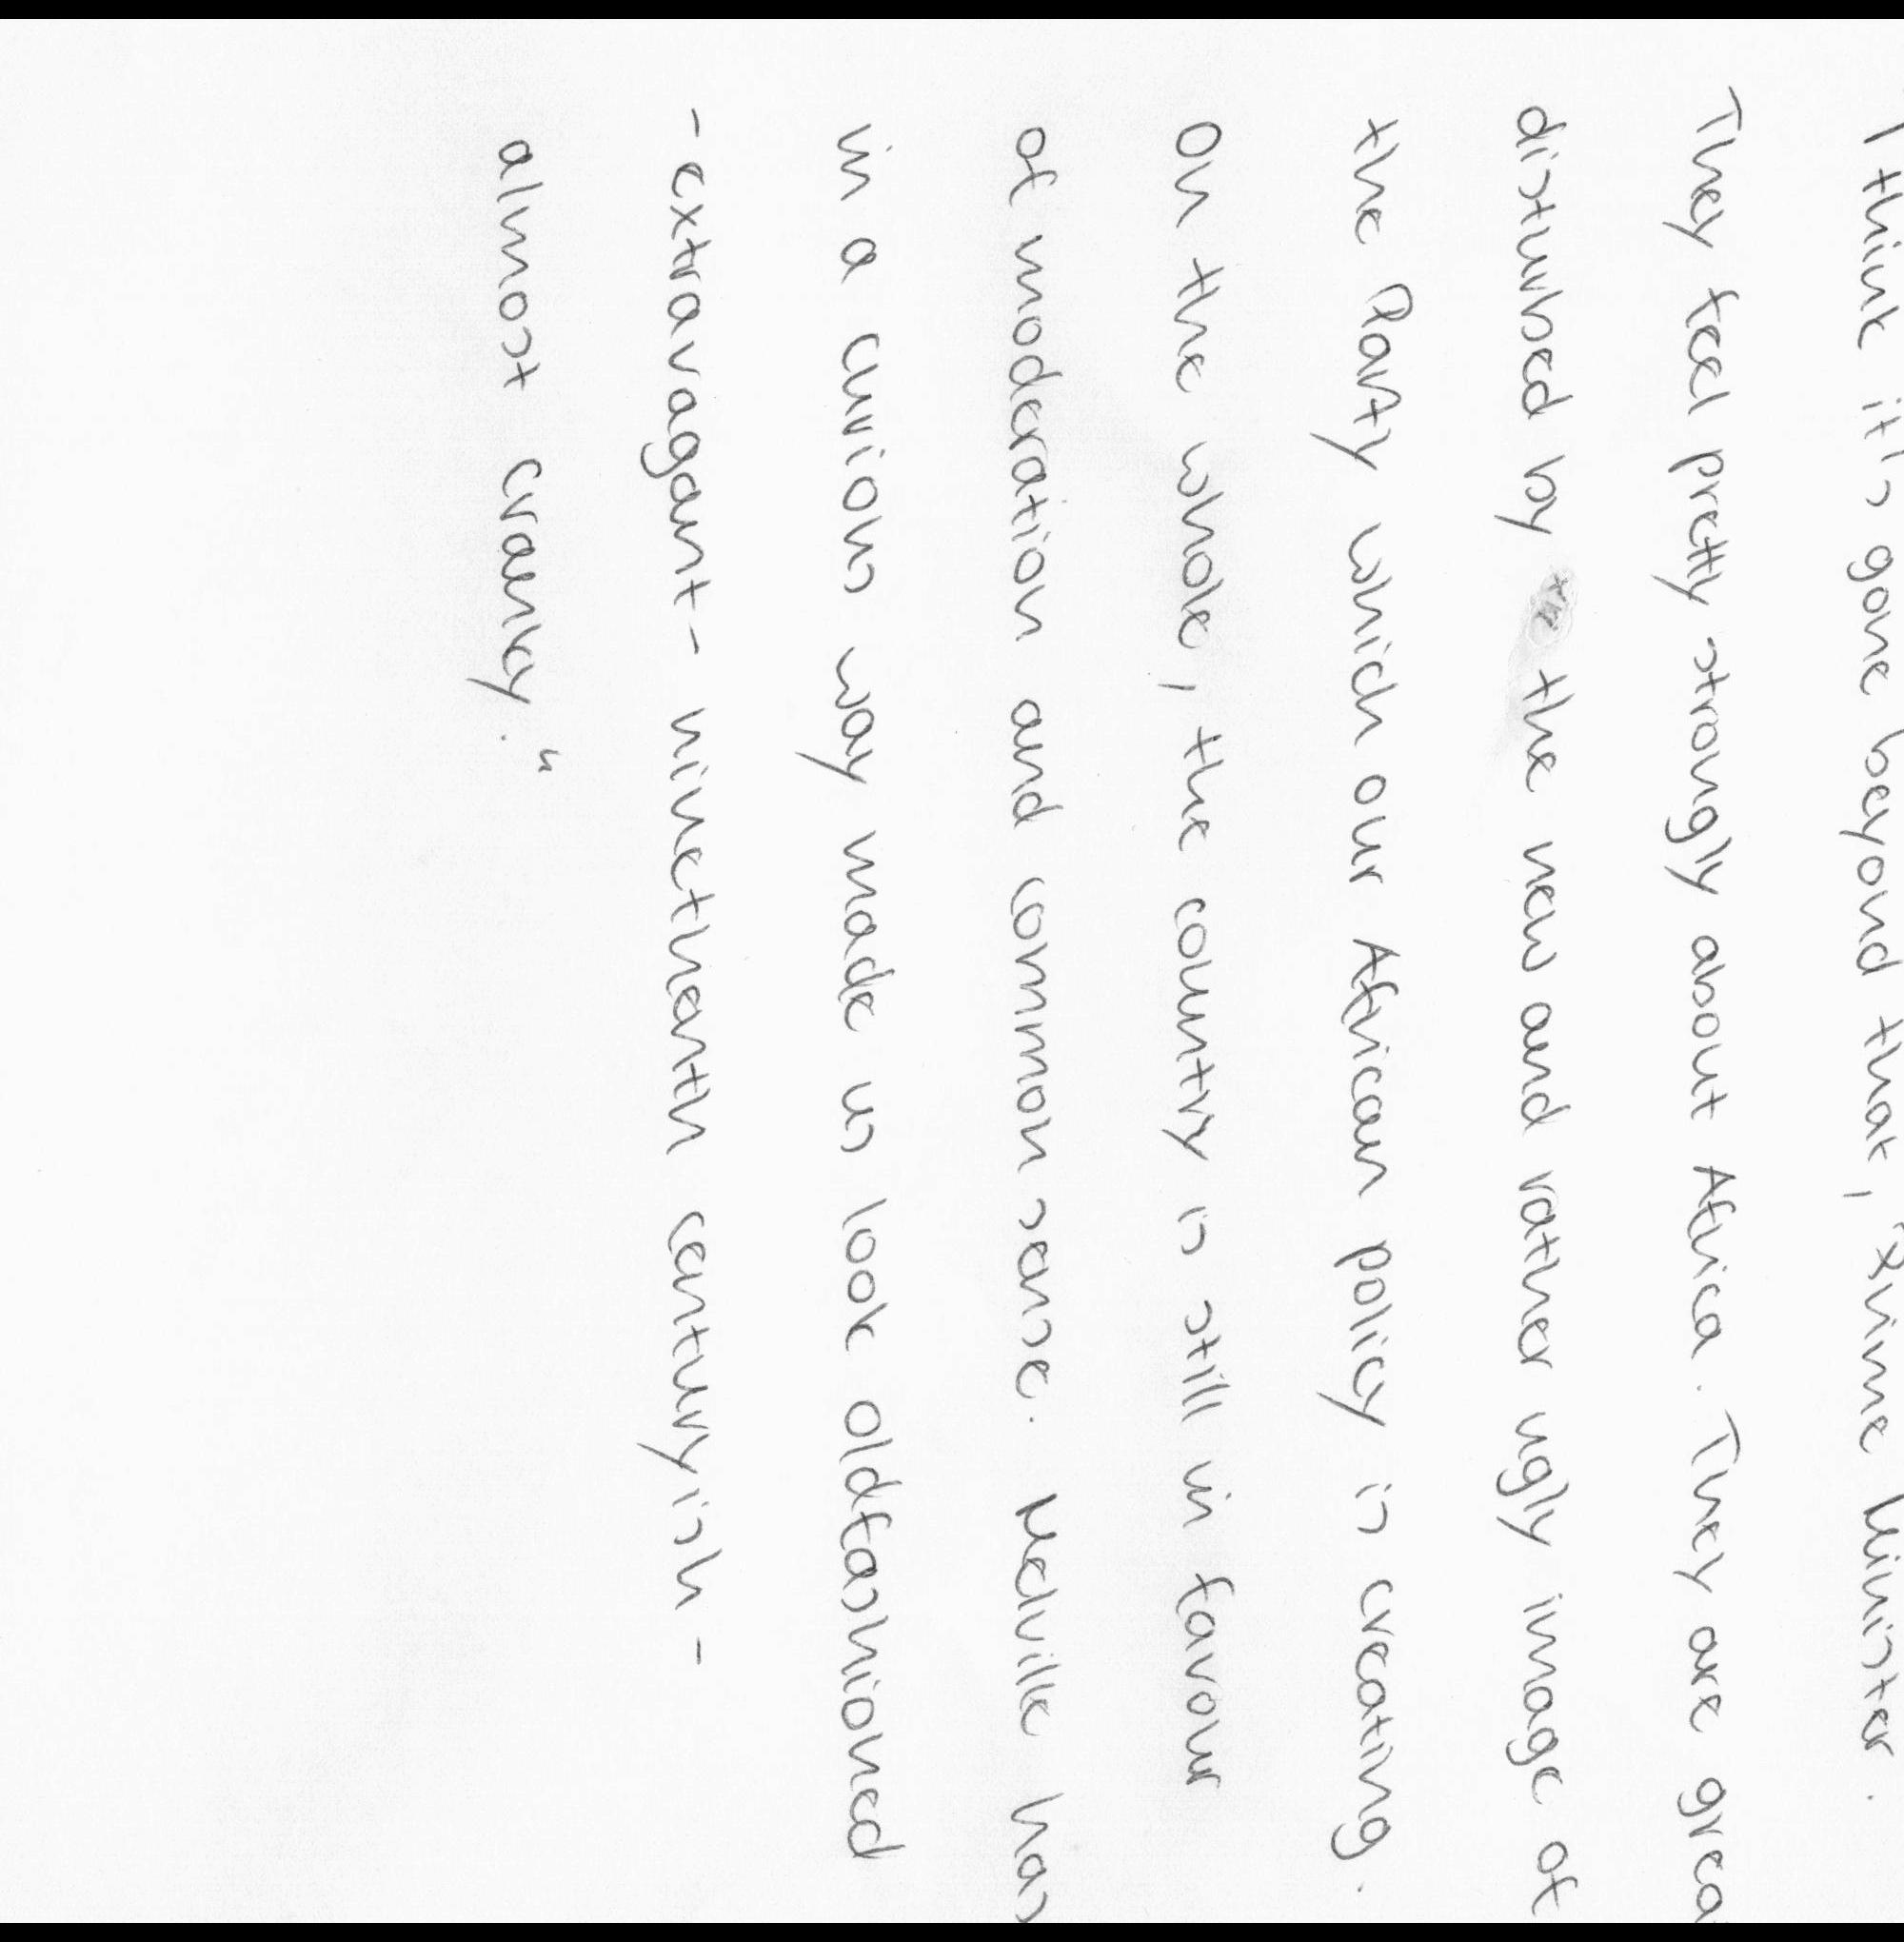 I think it's gone beyond that, Prime Minister.
They feel pretty strongly about Africa. They are grea
disturbed by the new and rather ugly image of
the Party which our African policy is creating.
On the whole, the country is still in favour
of moderation and common sense. Melville has
in a curious way made us look oldfashioned
- extravagant - nineteenth centuryish -
almost cranky."